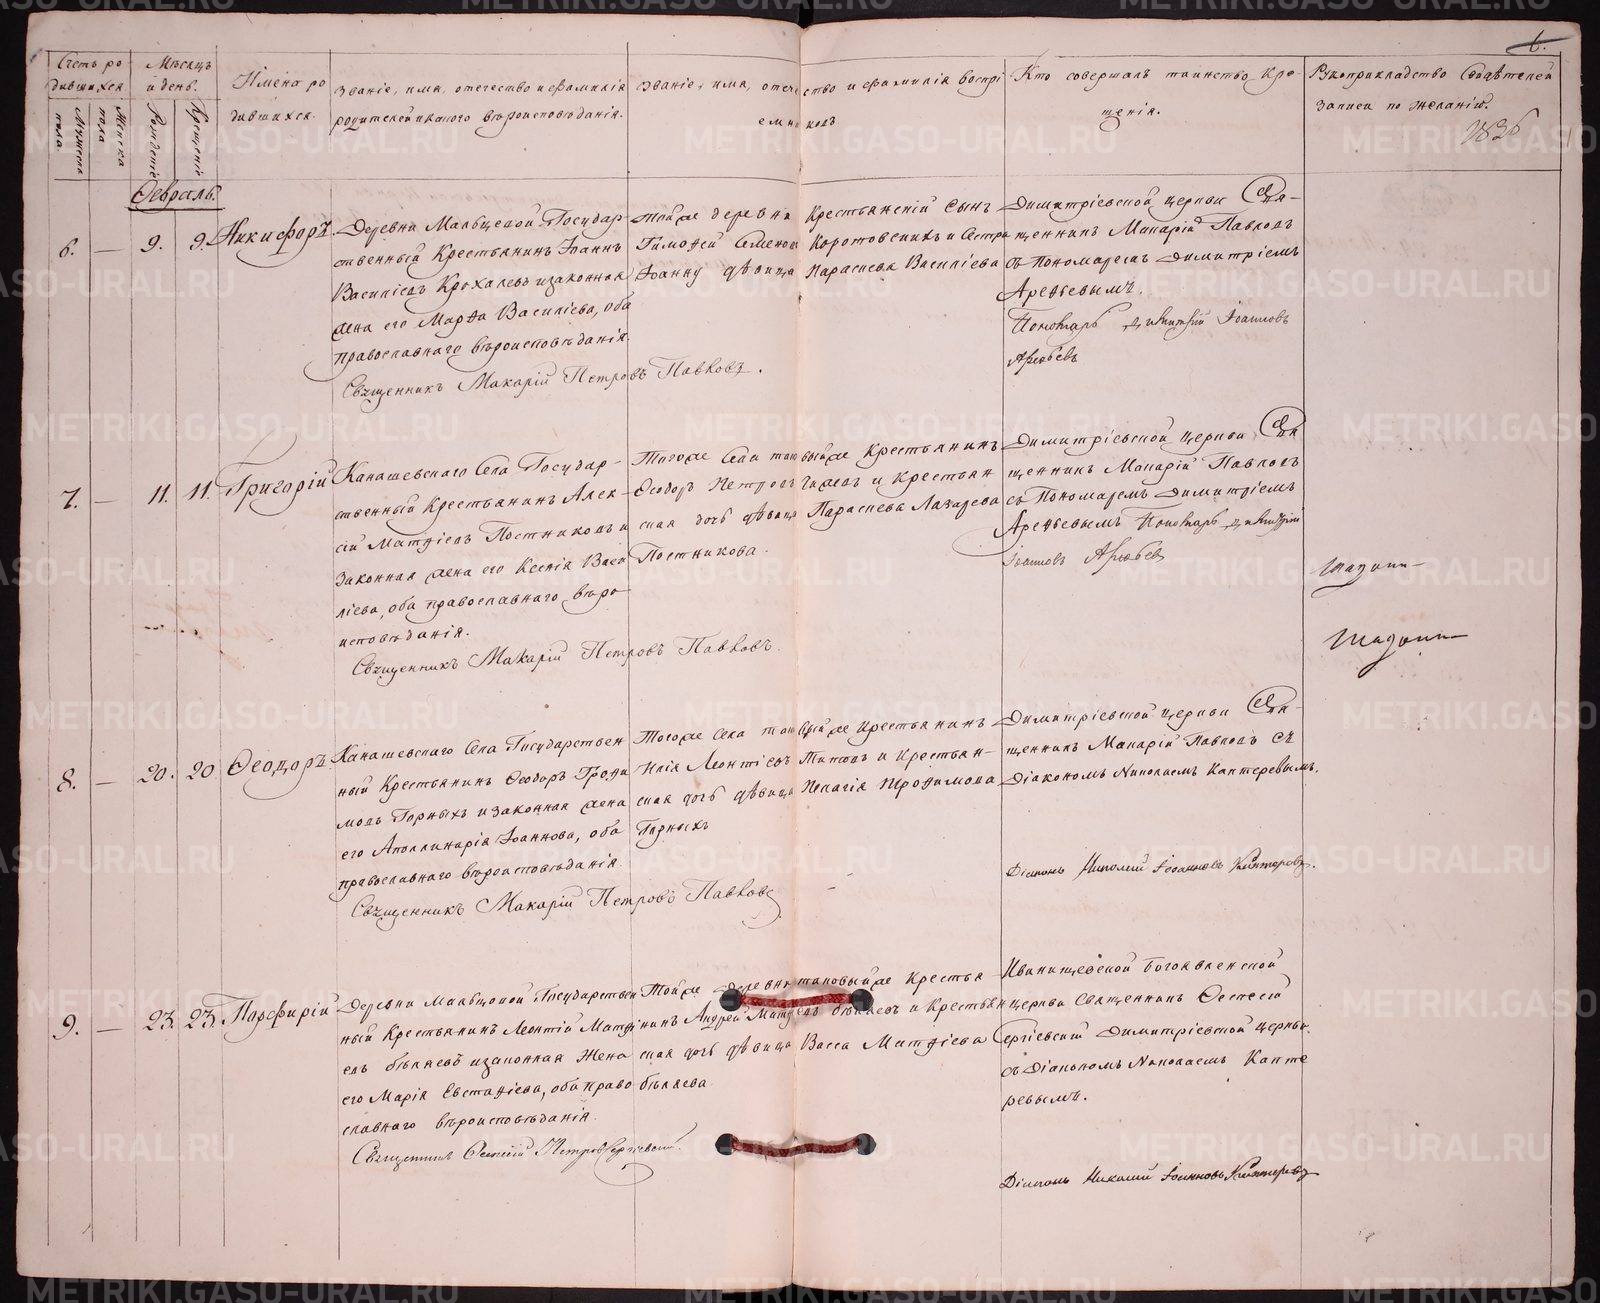 Счетъ ро-
дившихся
Мужеска
пола.
Женска
пола
Мѣсяцъ
и день.
Рожденіе
Крещеніе
Имена ро-
дившихся.
Званіе, имя, отечество и фамилія
родителей и какого вѣроисповѣданія.
Званіе, имя, отечество и фамилія воспрі
емниковъ
Кто совершалъ таинство кре-
щенія.
Рукоприкладство свидѣтелей
записи по желанію.
6.
1836
Февраль.
6. — 9. 9. Никифоръ.
Деревни Мальцевой Государ-
ственный Крестьянинъ Іоаннъ
Василіевъ Крохалевъ и законная
жена его Марѳа Василіева, оба
православнаго вѣроисповѣданія.
Священникъ Макарій Петровъ Павловъ.
Той же деревни Крестьянскій сынъ
Тимоѳей Семеновъ Коротовскихъ и сестра
Іоанну дѣвица Параскева Василіева
Димитріевской церкви Свя-
щенникъ Макарій Павловъ
съ Пономаремъ Димитріемъ
Арефьевымъ.
Пономарь Димитрій Іоанновъ
Арефьевъ
7. — 11. 11. Григорій
Канашевскаго Села Государ-
ственный Крестьянинъ Алек-
сій Матѳіевъ Постниковъ и
законная жена его Ксенія Васи
ліева, оба православнаго вѣро-
исповѣданія.
Священникъ Макарій Петровъ Павловъ.
Того же Села таковый же Крестьянинъ
Ѳеодоръ Петровъ и Крестьян
ская дочь дѣвица Параскева Лазарева
Постникова.
Димитріевской церкви Свя
щенникъ Макарій Павловъ
съ Пономаремъ Димитріемъ
Арефьевымъ Пономарь Димитрій
Іоанновъ Арефьевъ
8. — 20. 20 Ѳеодоръ.
Канашевскаго Села Государствен
ный Крестьянинъ Ѳеодоръ Трофи
мовъ Горныхъ и законная жена
его Аполлинарія Іоаннова, оба
православнаго вѣроисповѣданія.
Священникъ Макарій Петровъ Павловъ
Того же Села таковый же Крестьянинъ
Илія Леонтіевъ Титовъ и Крестьян-
ская дочь дѣвица Пелагія Трофимова
Горныхъ
Димитріевской церкви Свя-
щенникъ Макарій Павловъ съ
Діакономъ Николаемъ Каптеревымъ.
Діаконъ Николай Іоанновъ Каптеревъ.
9. — 23. 23. Парфирій
Деревни Мальцовой Государствен
ный Крестьянинъ Леонтій Матѳі
евъ Бѣляевъ и законная жена
его Марія Евстафіева, оба право
славнаго вѣроисповѣданія.
Священникъ Петровъ Сергіевскій.
Той же деревни таковый же Крестья
нинъ Андрей Матѳіевъ Бѣляевъ и Крестьян
ская дочь дѣвица Васса Матѳіева
Бѣляева
Иванищевской Богоявленской
церкви Священникъ
Сергіевскій Димитріевской церкви
съ Діакономъ Николаемъ Капте
ревымъ.
Діаконъ Николай Іоанновъ Каптеревъ